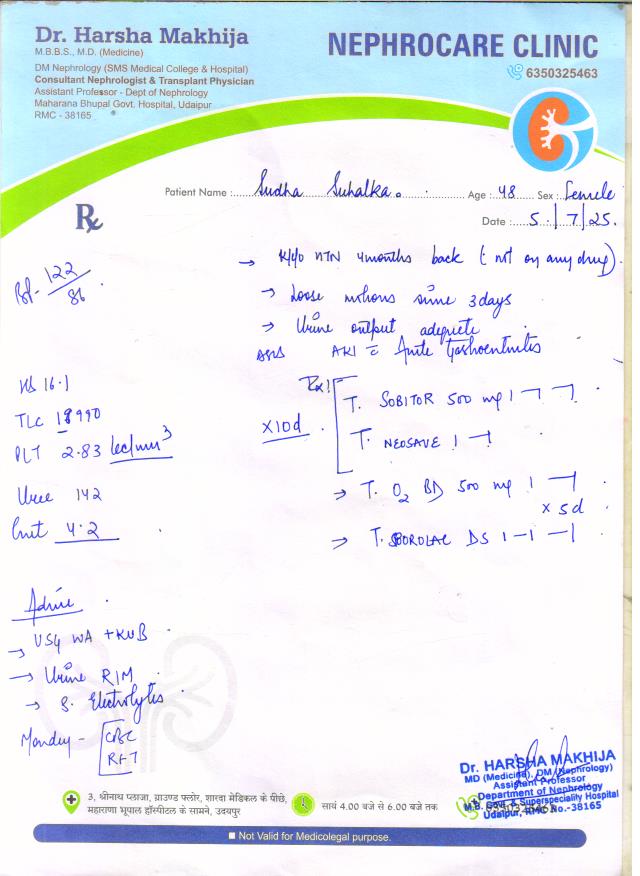 Dr. Harsha Makhija
M.B.B.S., M.D. (Medicine)
DM Nephrology (SMS Medical College & Hospital)
Consultant Nephrologist & Transplant Physician
Assistant Professor - Dept of Nephrology
Maharana Bhupal Govt. Hospital, Udaipur
RMC - 38165
NEPHROCARE CLINIC
6350325463
Patient Name : Sudha Suhalka. Age : 48 Sex : Female
Rx
Date : 5/7/25.
BP- 122/86
→ K/c/o HTN 4months back (not on any drug).
→ Loose motions since 3days
→ Urine output adequate
AKI c Acute Gastroenteritis
Hb 16.1
TLC 18990
PLT 2.83 lac/mm3
Urea 142
Creat 4.2
Rx!
x10d
T. SOBITOR 500 mg 1 ⁊ ⁊
T. NEOSAVE 1 ⊣
→ T. O2 BD 500 mg 1 — 1
x 5d
→ T. SPOROLAC DS 1-1-1
Advice
→ USG WA + KUB
→ Urine R/M
→ S. Electrolytes
Monday - CBC
RFT
3, श्रीनाथ प्लाजा, ग्राउण्ड फ्लोर, शारदा मेडिकल के पीछे,
महाराणा भूपाल हॉस्पीटल के सामने, उदयपुर
सायं 4.00 बजे से 6.00 बजे तक
Dr. HARSHA MAKHIJA
MD (Medicine), DM (Nephrology)
Assistant Professor
Department of Nephrology
M.B. Govt. & Superspeciality Hospital
Udaipur, RMC No.-38165
Not Valid for Medicolegal purpose.